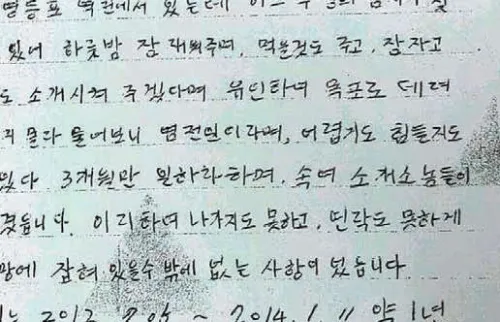 영등포 역전에서 있는데
있어 하룻밤 잠 재워주며, 먹을것도 주고, 잠자고
도 소개시켜 주겠다며 유인하며 목포로 데려
지 몰라 물어보니 염전일이라며, 어렵기도 힘들지도
있다 3개월만 일하라하며, 속여 소개소놈들이
겼습니다. 이리하여 나가지도 못하고, 연락도 못하게
망에 잡혀 있을수 밖에 없는 사항이 었습니다
는 2012. ~ 2014. 1. 11 약 1년